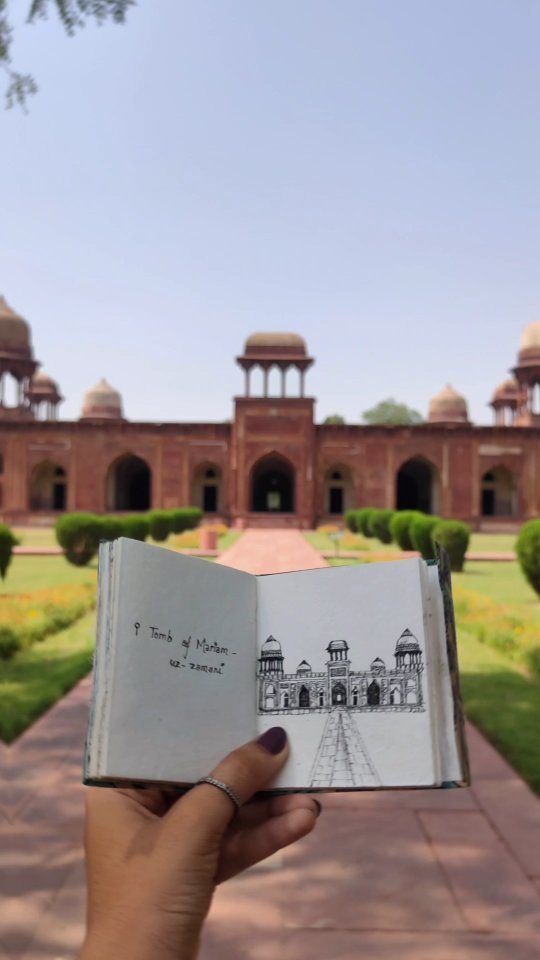 Tomb of Mariam-
uz-zamani